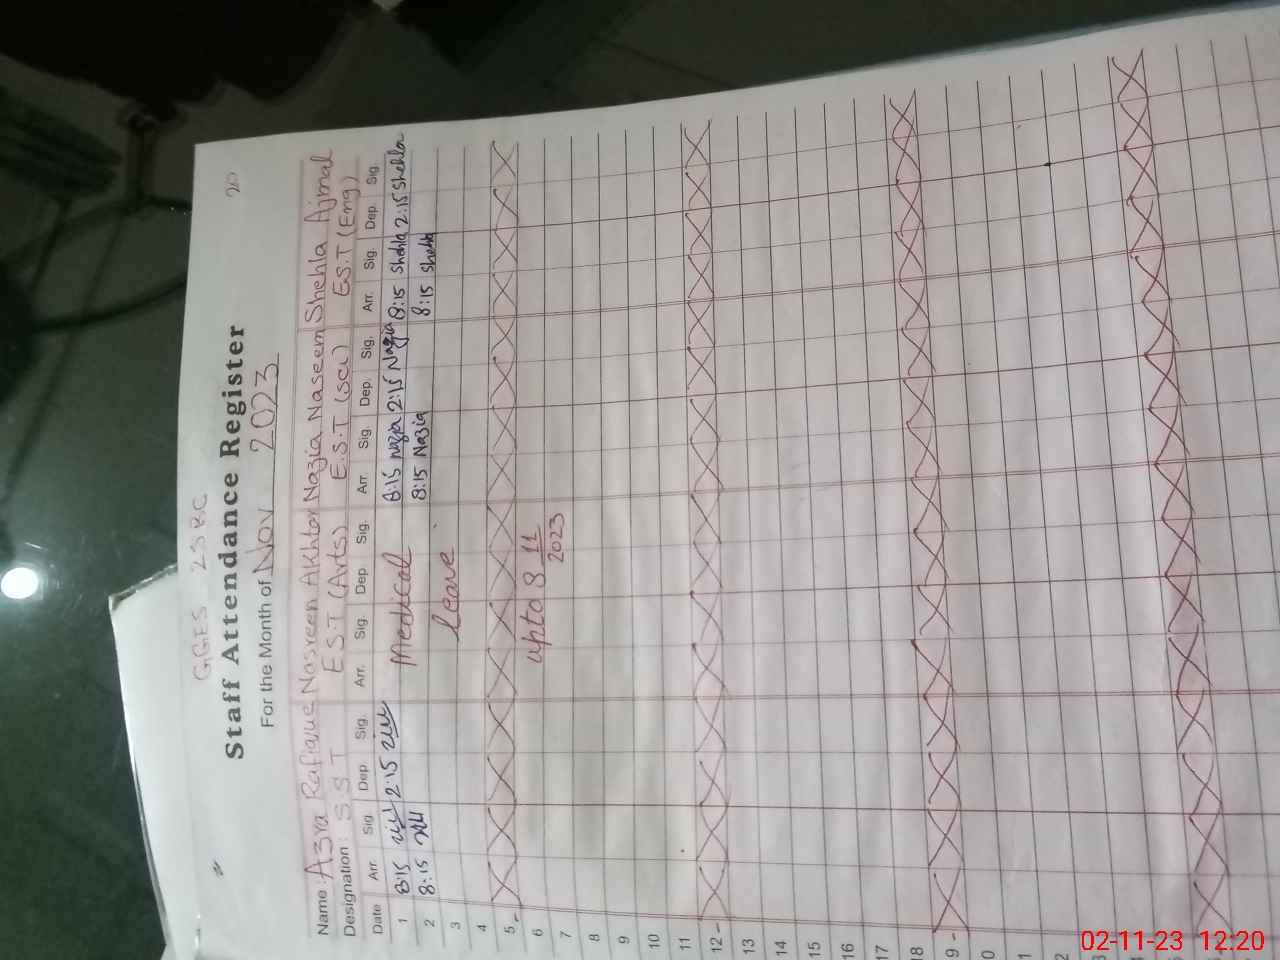 GGES 25BC
Staff Attendance Register 20
For the Month of Nov 2023
Name : Azra Rafique Nasreen Akhtar Nazia Naseem Shehla Ajmal
Designation : S.S.T EST (Arts) E.S.T (Sci) E.S.T (Eng)
Date Arr. Sig. Dep Sig. Arr. Sig. Dep Sig. Arr. Sig. Dep. Sig. Arr. Sig. Dep. Sig.
1 8:15 2:15 Medical 8:15 Nazia 2:15 Nazia 8:15 Shehla 2:15 Shehla
2 8:15 8:15 Nazia 8:15 Shehla
3 leave
4
5
6 upto 8 11
7 2023
8
9
10
11
12
13
14
15
16
17
18
9
0
1
2
02-11-23 12:20